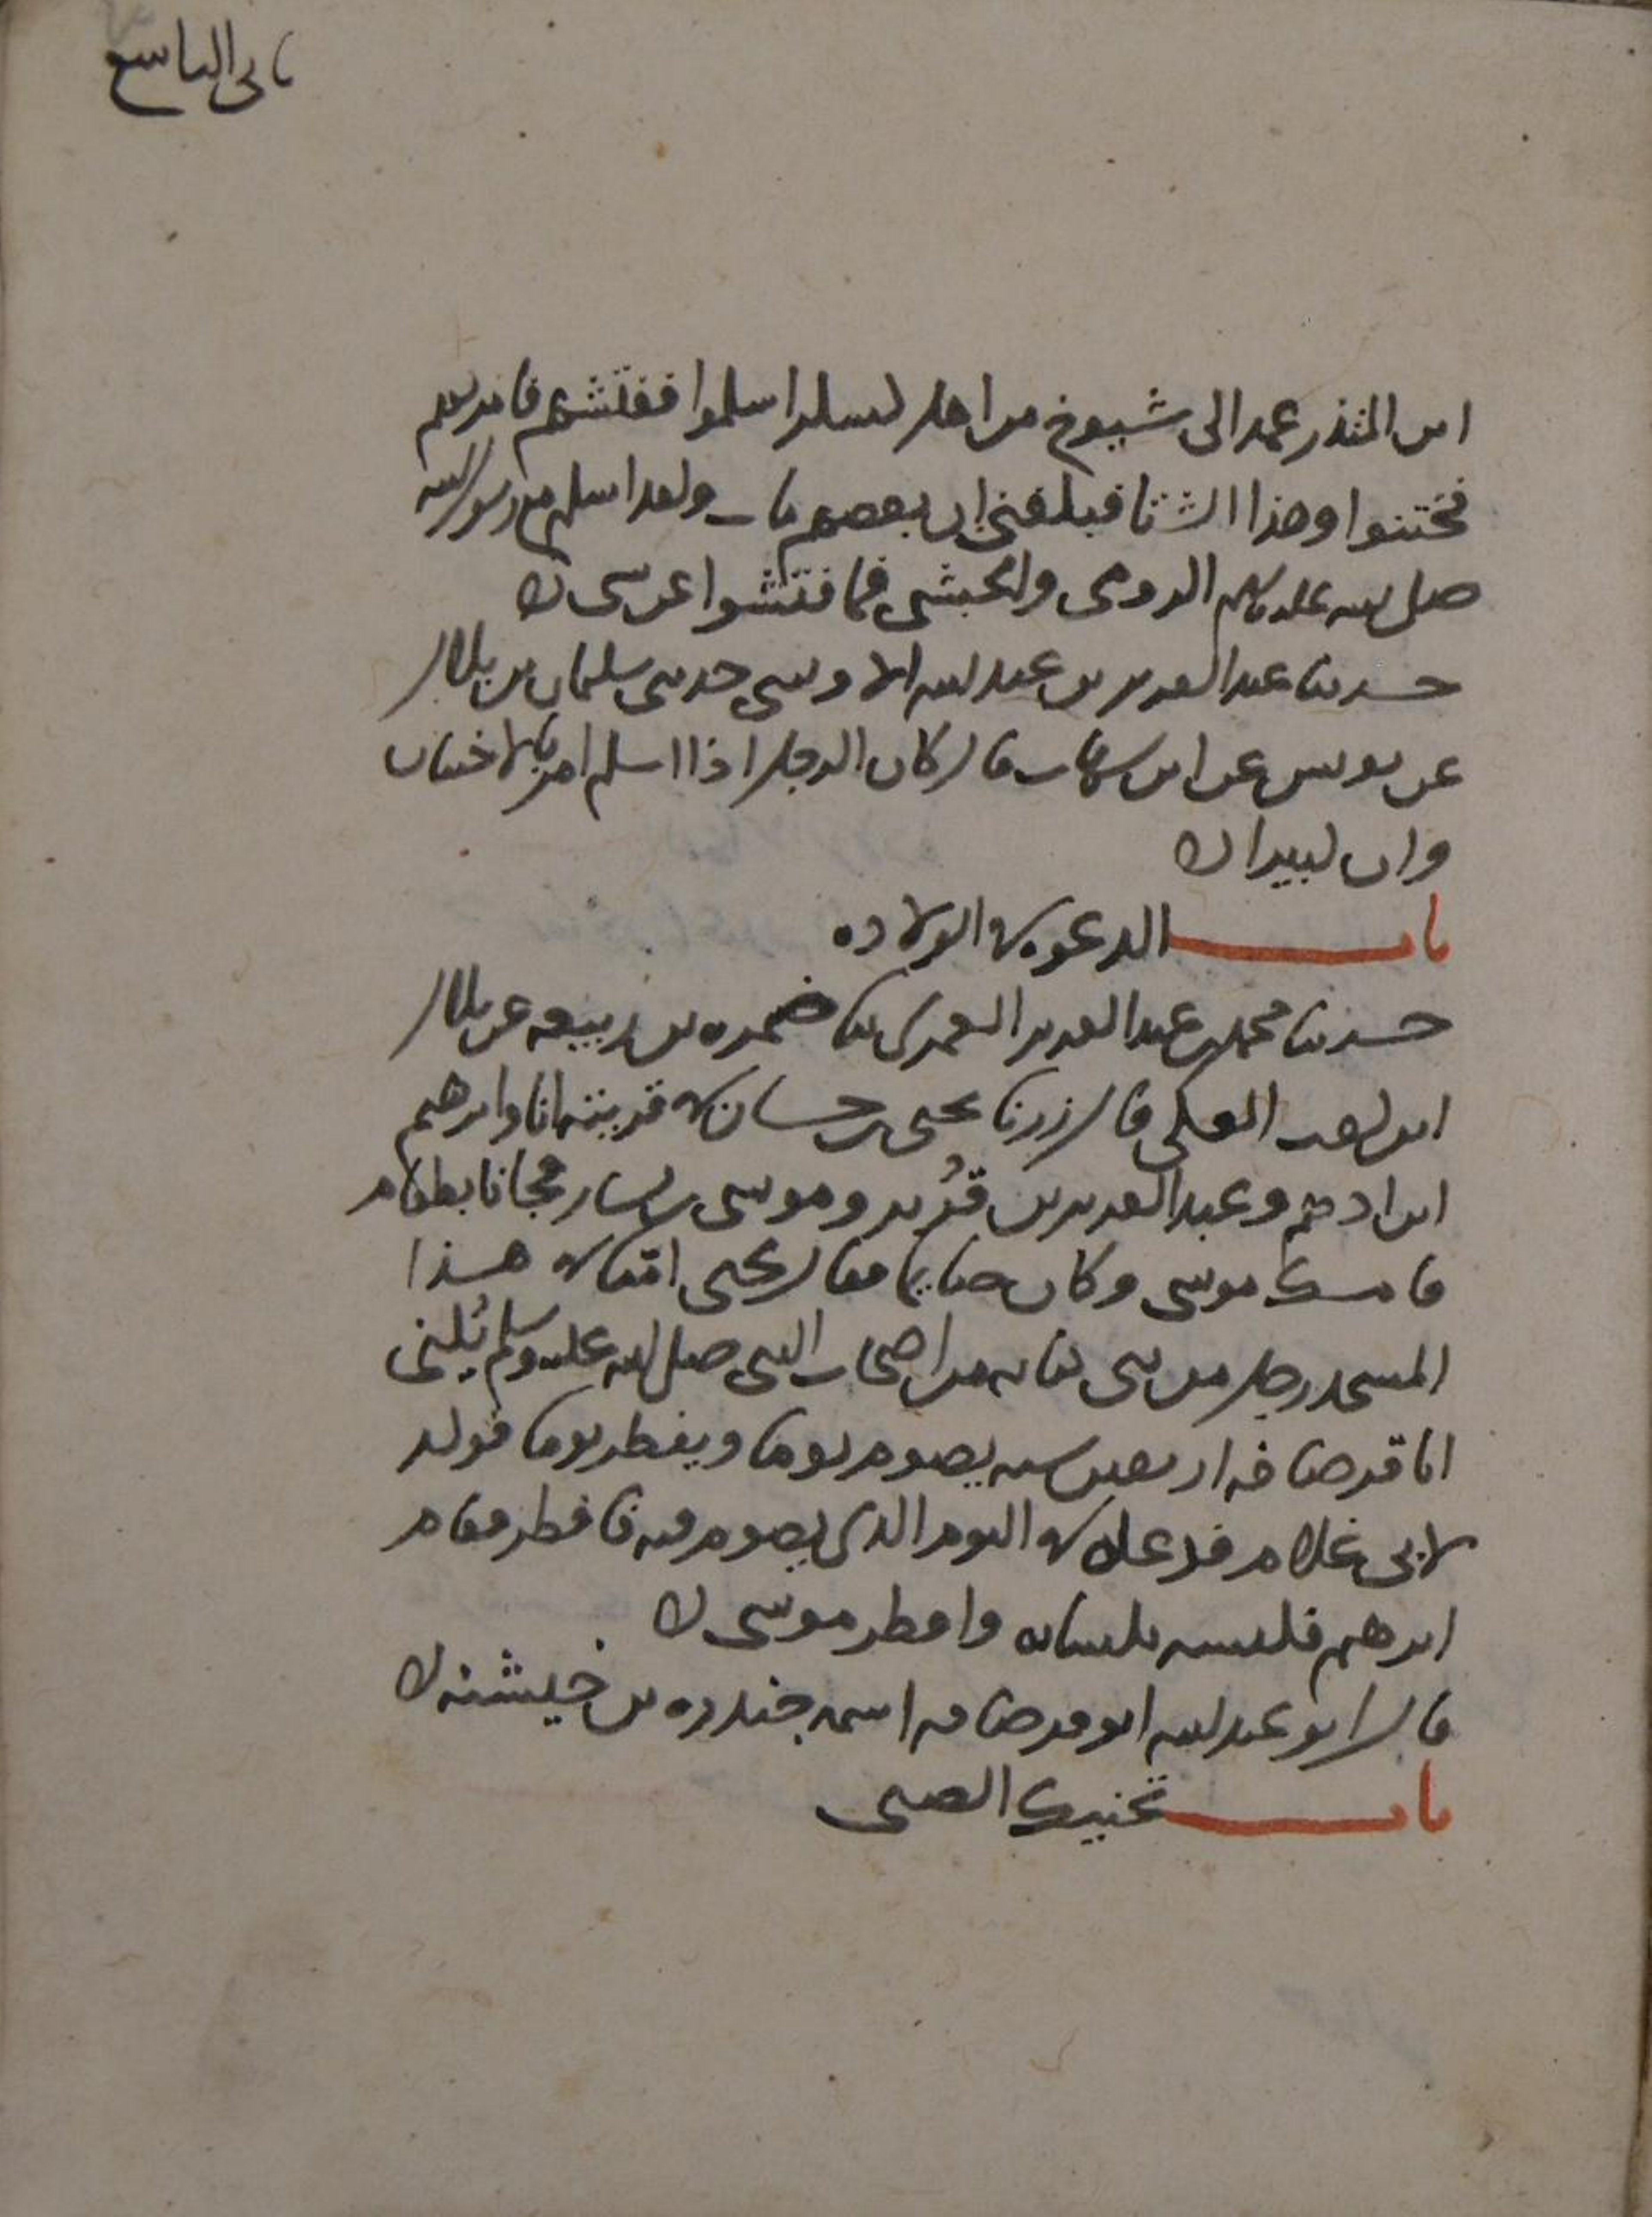 ثانى التاسع
ابن المنذر عمد الى شيوخ من اهل كسكر اسلموا ففتشهم فامر بهم
فختنوا وهذا الشتا فبلغنى ان بعضهم مات ولقد اسلم مع رسول الله
صلى الله عليه وسلم الرومى والحبشى فما فتشوا عن شى ه
حدثنا عبد العزيز بن عبد الله الاويسى حدثنى سليمان بن بلال
عن يونس عن ابن شهاب قال كان الرجل اذا اسلم امر بالاختتان
وان كبيرا ه
باب الدعوه فى الولاده
حدثنا محمد بن عبد العزيز العمرى ثنا ضمره بن ربيعه عن بلال
ابن كعب العكى قال زرنا يحيى بن حسان فى قريته انا وابرهيم
ابن ادهم وعبد العزيز بن قُرير وموسى بن يسار فجانا بطعام
فامسك موسى وكان صايما فقال يحيى امّنا فى هذا
المسجد رجل من بنى كنانه من اصحاب النبى صلى الله عليه وسلم يُكنى
ابا قرصافه اربعين سنه يصوم يوما ويفطر يوما فولد
لابى غلام فدعاه فى اليوم الذى يصوم فيه فافطر فقام
ابرهيم فكنسه بكسائه وافطر موسى ه
قال ابو عبد الله ابو قرصافه اسمه جندره بن خيشنه ه
باب تحنيك الصبى